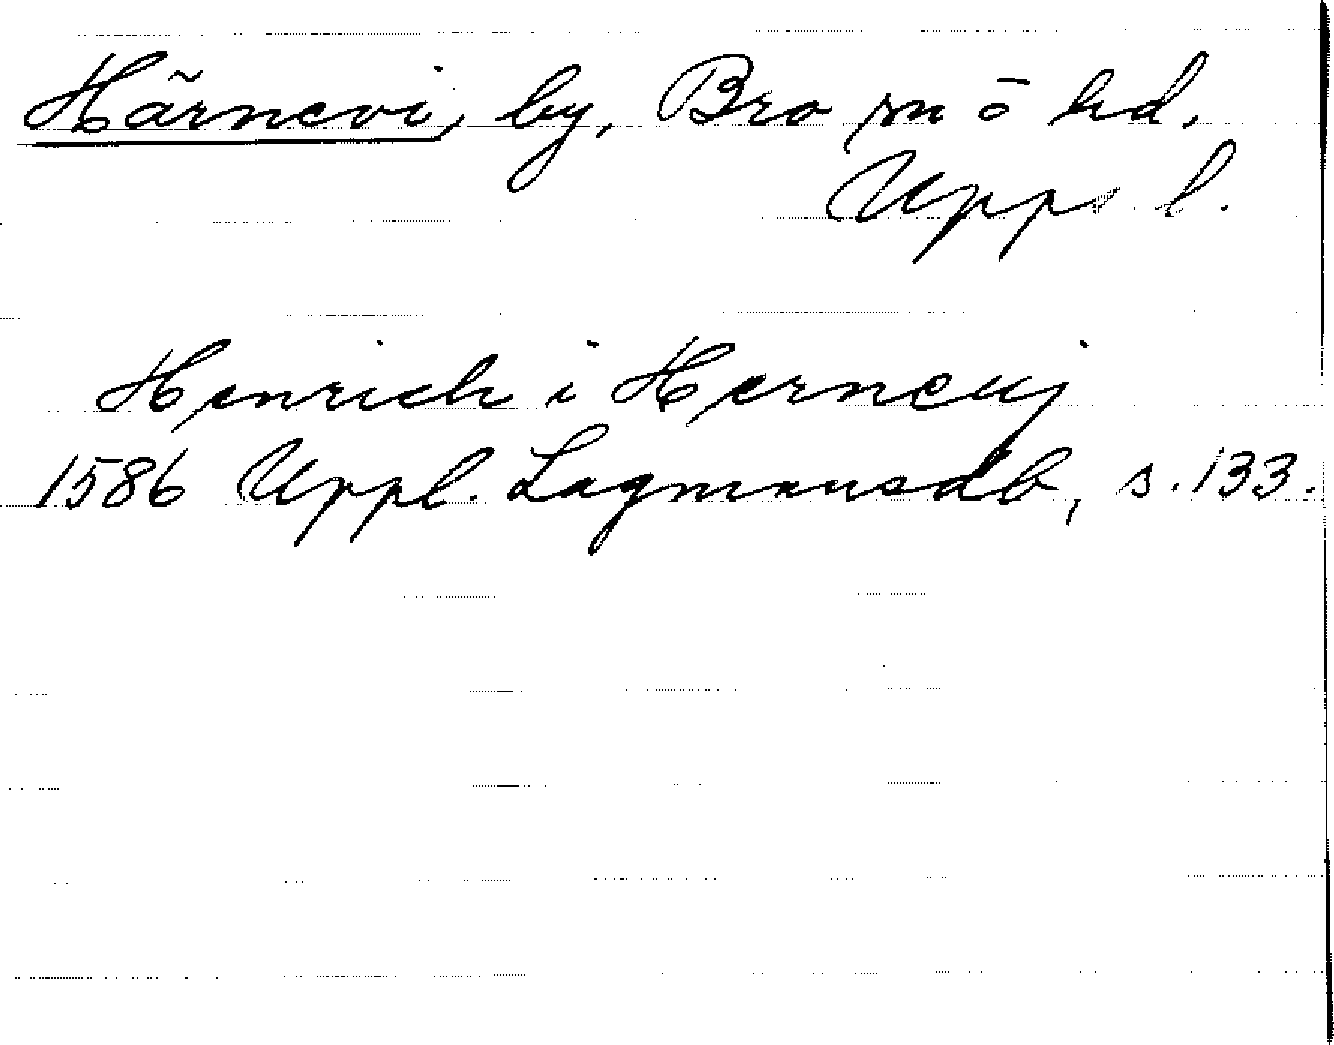 Härnevi, by, Bro sn o hd,
Upps l.
Henrich i Herneuj
1586 Uppl. Lagmansdb, s. 133.